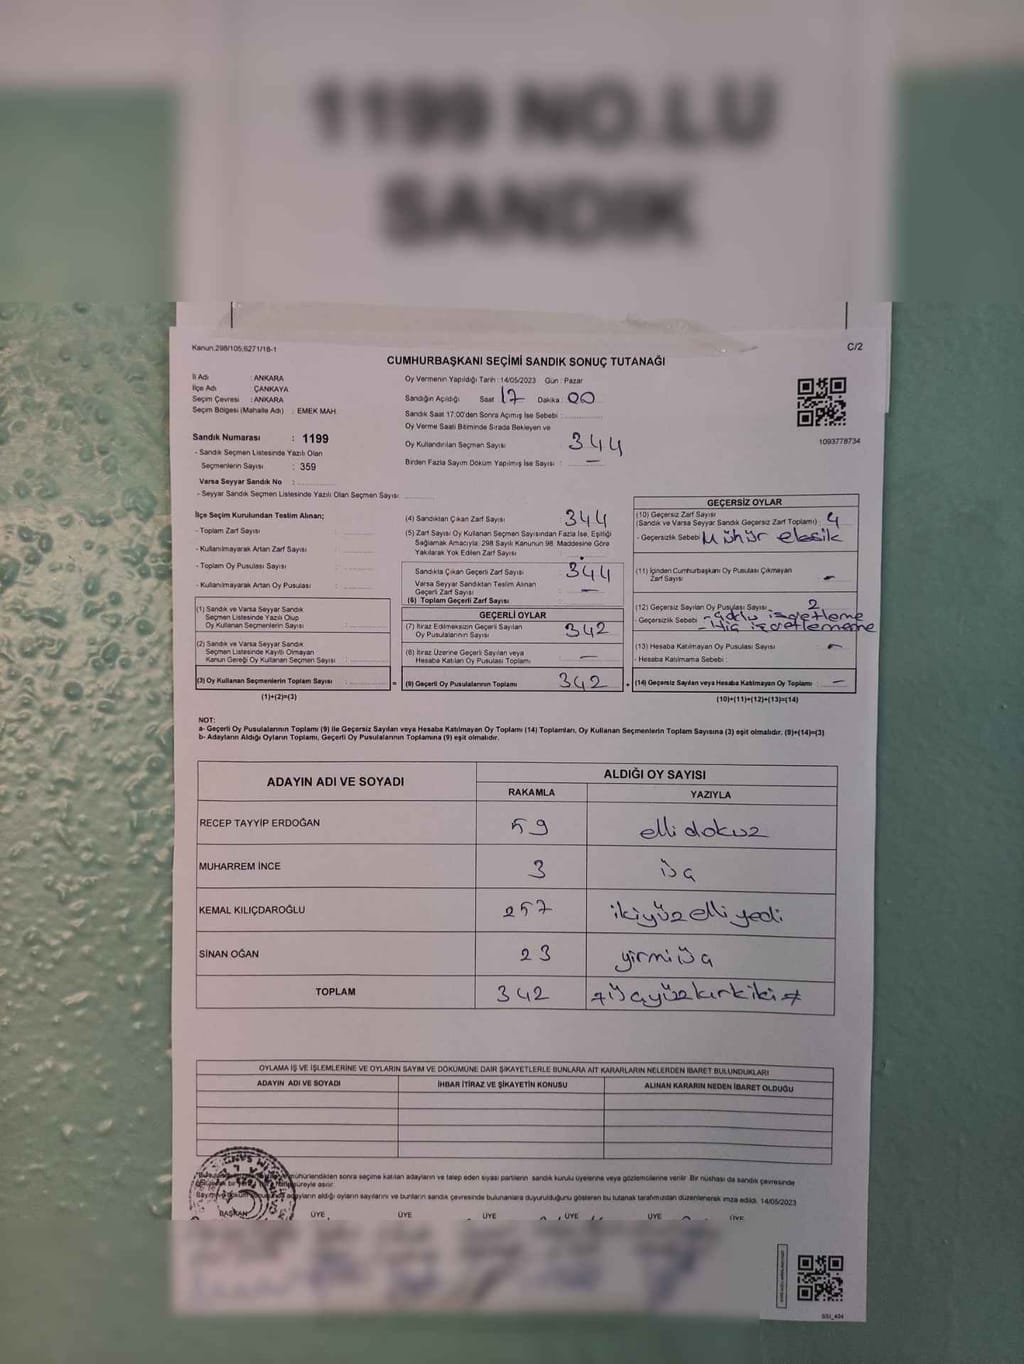 1199 NO.LU
SANDIK
Kanun:298/105;6271/18-1
C/2
CUMHURBAŞKANI SEÇİMİ SANDIK SONUÇ TUTANAĞI
İl Adı : ANKARA
İlçe Adı ÇANKAYA
Seçim Çevresi : ANKARA
Seçim Bölgesi (Mahalle Adı) : EMEK MAH.
Sandık Numarası : 1199
- Sandık Seçmen Listesinde Yazılı Olan
Seçmenlerin Sayısı : 359
Varsa Seyyar Sandık No :
- Seyyar Sandık Seçmen Listesinde Yazılı Olan Seçmen Sayısı:
Oy Vermenin Yapıldığı Tarih : 14/05/2023 Gün : Pazar
Sandığın Açıldığı Saat 17 Dakika 00
Sandık Saat 17.00'den Sonra Açılmış İse Sebebi :
Oy Verme Saati Bitiminde Sırada Bekleyen ve
Oy Kullandırılan Seçmen Sayısı 344
Birden Fazla Sayım Döküm Yapılmış İse Sayısı : —
1093778734
İlçe Seçim Kurulundan Teslim Alınan;
- Toplam Zarf Sayısı :
- Kullanılmayarak Artan Zarf Sayısı :
- Toplam Oy Pusulası Sayısı :
- Kullanılmayarak Artan Oy Pusulası :
(1) Sandık ve Varsa Seyyar Sandık
Seçmen Listesinde Yazılı Olup
Oy Kullanan Seçmenlerin Sayısı :
(2) Sandık ve Varsa Seyyar Sandık
Seçmen Listesinde Kayıtlı Olmayan
Kanun Gereği Oy Kullanan Seçmen Sayısı :
(3) Oy Kullanan Seçmenlerin Toplam Sayısı :
(1)+(2)=(3)
(4) Sandıktan Çıkan Zarf Sayısı 344
(5) Zarf Sayısı Oy Kullanan Seçmen Sayısından Fazla İse, Eşitliği
Sağlamak Amacıyla; 298 Sayılı Kanunun 98. Maddesine Göre
Yakılarak Yok Edilen Zarf Sayısı
Sandıkta Çıkan Geçerli Zarf Sayısı 344
Varsa Seyyar Sandıktan Teslim Alınan
Geçerli Zarf Sayısı —
(6) Toplam Geçerli Zarf Sayısı
GEÇERLİ OYLAR
(7) İtiraz Edilmeksizin Geçerli Sayılan
Oy Pusulalarının Sayısı 342
(8) İtiraz Üzerine Geçerli Sayılan veya
Hesaba Katılan Oy Pusulası Toplamı —
(9) Geçerli Oy Pusulalarının Toplamı 342
GEÇERSİZ OYLAR
(10) Geçersiz Zarf Sayısı
(Sandık ve Varsa Seyyar Sandık Geçersiz Zarf Toplamı) : 4
- Geçersizlik Sebebi Mühür eksik
(11) İçinden Cumhurbaşkanı Oy Pusulası Çıkmayan
Zarf Sayısı —
(12) Geçersiz Sayılan Oy Pusulası Sayısı : 2
- Geçersizlik Sebebi - işaretleme
- Hiç işaretlememe
(13) Hesaba Katılmayan Oy Pusulası Sayısı —
- Hesaba Katılmama Sebebi :
(14) Geçersiz Sayılan veya Hesaba Katılmayan Oy Toplamı : —
(10)+(11)+(12)+(13)=(14)
NOT:
a- Geçerli Oy Pusulalarının Toplamı (9) ile Geçersiz Sayılan veya Hesaba Katılmayan Oy Toplamı (14) Toplamları, Oy Kullanan Seçmenlerin Toplam Sayısına (3) eşit olmalıdır. (9)+(14)=(3)
b- Adayların Aldığı Oyların Toplamı, Geçerli Oy Pusulalarının Toplamına (9) eşit olmalıdır.
ADAYIN ADI VE SOYADI ALDIĞI OY SAYISI
RAKAMLA YAZIYLA
RECEP TAYYİP ERDOĞAN 59 elli dokuz
MUHARREM İNCE 3 üç
KEMAL KILIÇDAROĞLU 257 ikiyüzelliyedi
SİNAN OĞAN 23 yirmiüç
TOPLAM 342 #üçyüzkırkiki#
OYLAMA İŞ VE İŞLEMLERİNE VE OYLARIN SAYIM VE DÖKÜMÜNE DAİR ŞİKAYETLERLE BUNLARA AİT KARARLARIN NELERDEN İBARET BULUNDUKLARI
ADAYIN ADI VE SOYADI İHBAR İTİRAZ VE ŞİKAYETİN KONUSU ALINAN KARARIN NEDEN İBARET OLDUĞU
mühürlendikten sonra seçime katılan adayların ve talep eden siyasi partilerin sandık kurulu üyelerine veya gözlemcilerine verilir. Bir nüshası da sandık çevresinde
adayların aldığı oyların sayılarını ve bunların sandık çevresinde bulunanlara duyurulduğunu gösteren bu tutanak tarafımızdan düzenlenerek imza edildi. 14/05/2023
BAŞKAN ÜYE ÜYE ÜYE ÜYE ÜYE ÜYE